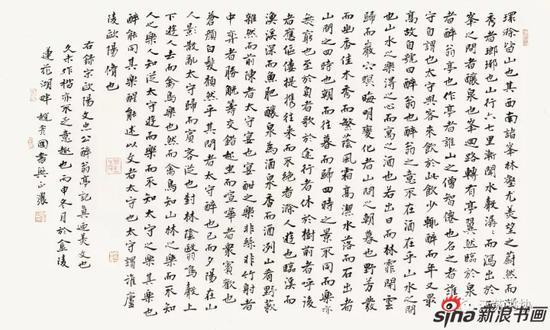 環滁皆山也其西南諸峯林壑尤美望之蔚然而深
秀者瑯琊也山行六七里漸聞水聲潺潺而瀉出於兩
峯之間者釀泉也峯回路轉有亭翼然臨於泉上者
醉翁亭也作亭者誰山之僧智僊也名之者誰太
守自謂也太守與客來飲於此飲少輒醉而年又最
高故自號曰醉翁也醉翁之意不在酒在乎山水之間
也山水之樂得之心而寓之酒也若夫日出而林霏開雲
歸而巖穴暝晦明變化者山間之朝暮也野芳發
而幽香佳木秀而繁陰風霜高潔水落而石出者
山間之四時也朝而往暮而歸四時之景不同而樂亦
無窮也至於負者歌於途行者休於樹前者呼後
者應傴僂提攜往來而不絕者滁人遊也臨溪而
漁溪深而魚肥釀泉為酒泉香而酒洌山肴野蔌
雜然而前陳者太守宴也宴酣之樂非絲非竹射者
中弈者勝觥籌交錯起坐而諠譁者眾賓歡也
蒼顏白髮頹然乎其間者太守醉也已而夕陽在山
人影散亂太守歸而賓客從也樹林陰翳鳴聲上
下遊人去而禽鳥樂也然而禽鳥知山林之樂而不知
人之樂人知從太守遊而樂而不知太守之樂其樂也
醉能同其樂醒能述以文者太守也太守謂誰廬
陵歐陽脩也
右録宋歐陽文忠公醉翁亭記真美文也
久未作楷亦不意趣也丙申冬月於金陵
蓮花湖畔趙國書興正濃
sina
新浪书画